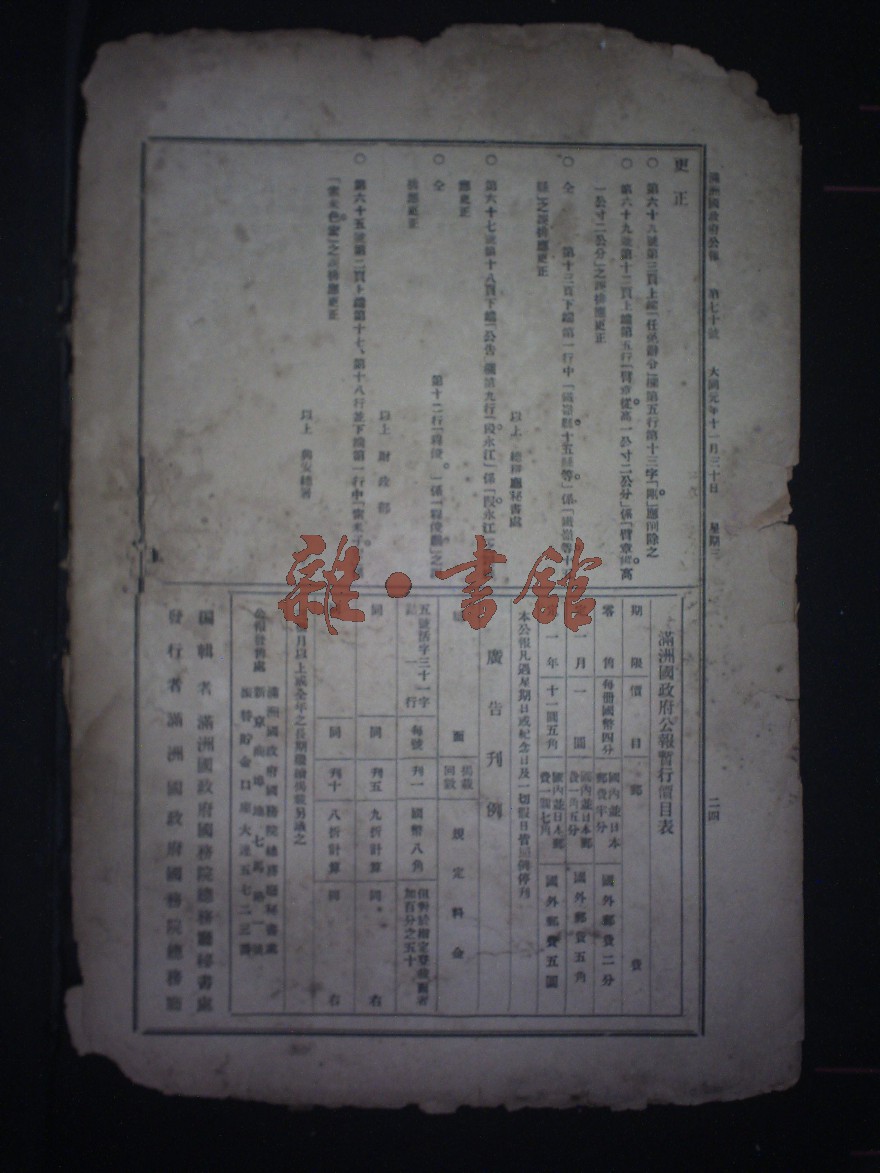 滿洲國政府公報 第七十號 大同元年十一月三十日 星期三 二四
更正
○ 第六十八號第三頁上端「任免辭令」欄第五行第十三字「剛」應削除之
○ 第六十九號第十二頁上端第五行「臂章縱高一公寸二公分」係「臂章縱高
一公寸二公分」之誤橋應更正
○ 仝 第十三頁下端第一行中
之誤橋應更正
以上 總務廳秘書處
○ 第六十七號第十八頁下端「公告」欄第九行「段永江」係「段永江」之
應更正
○ 仝 第十二行
橋應更正
以上 財政部
○ 第六十五號第二頁下端第十七、第十八行並下端第一行中
之誤橋應更正
以上 興安總署
滿洲國政府公報暫行價目表
期限 價目 郵費
零售 每冊國幣四分 國內並日本郵費半分 國外郵費二分
一月 一圓 國內並日本郵費一角五分 國外郵費五角
一年 十一圓五角 國內並日本郵費一圓七角 國外郵費五圓
本公報凡遇星期日或紀念日及一切假日皆照例停刊
廣告刊例
面 揭載回數 規定料金
五號活字三十一字詰一行 每號 刊一 國幣八角 但對於指定登載面者加百分之五十
同 同 刊五 九折計算 同右
同 同 刊十 八折計算 同右
月以上或全年之長期繼續揭載另議之
公報發售處 滿洲國政府國務院總務廳秘書處
新京商埠地七馬路一號
振替貯金口座大連五七二三番
編輯者 滿洲國政府國務院總務廳秘書處
發行者 滿洲國政府國務院總務廳
雜·書館